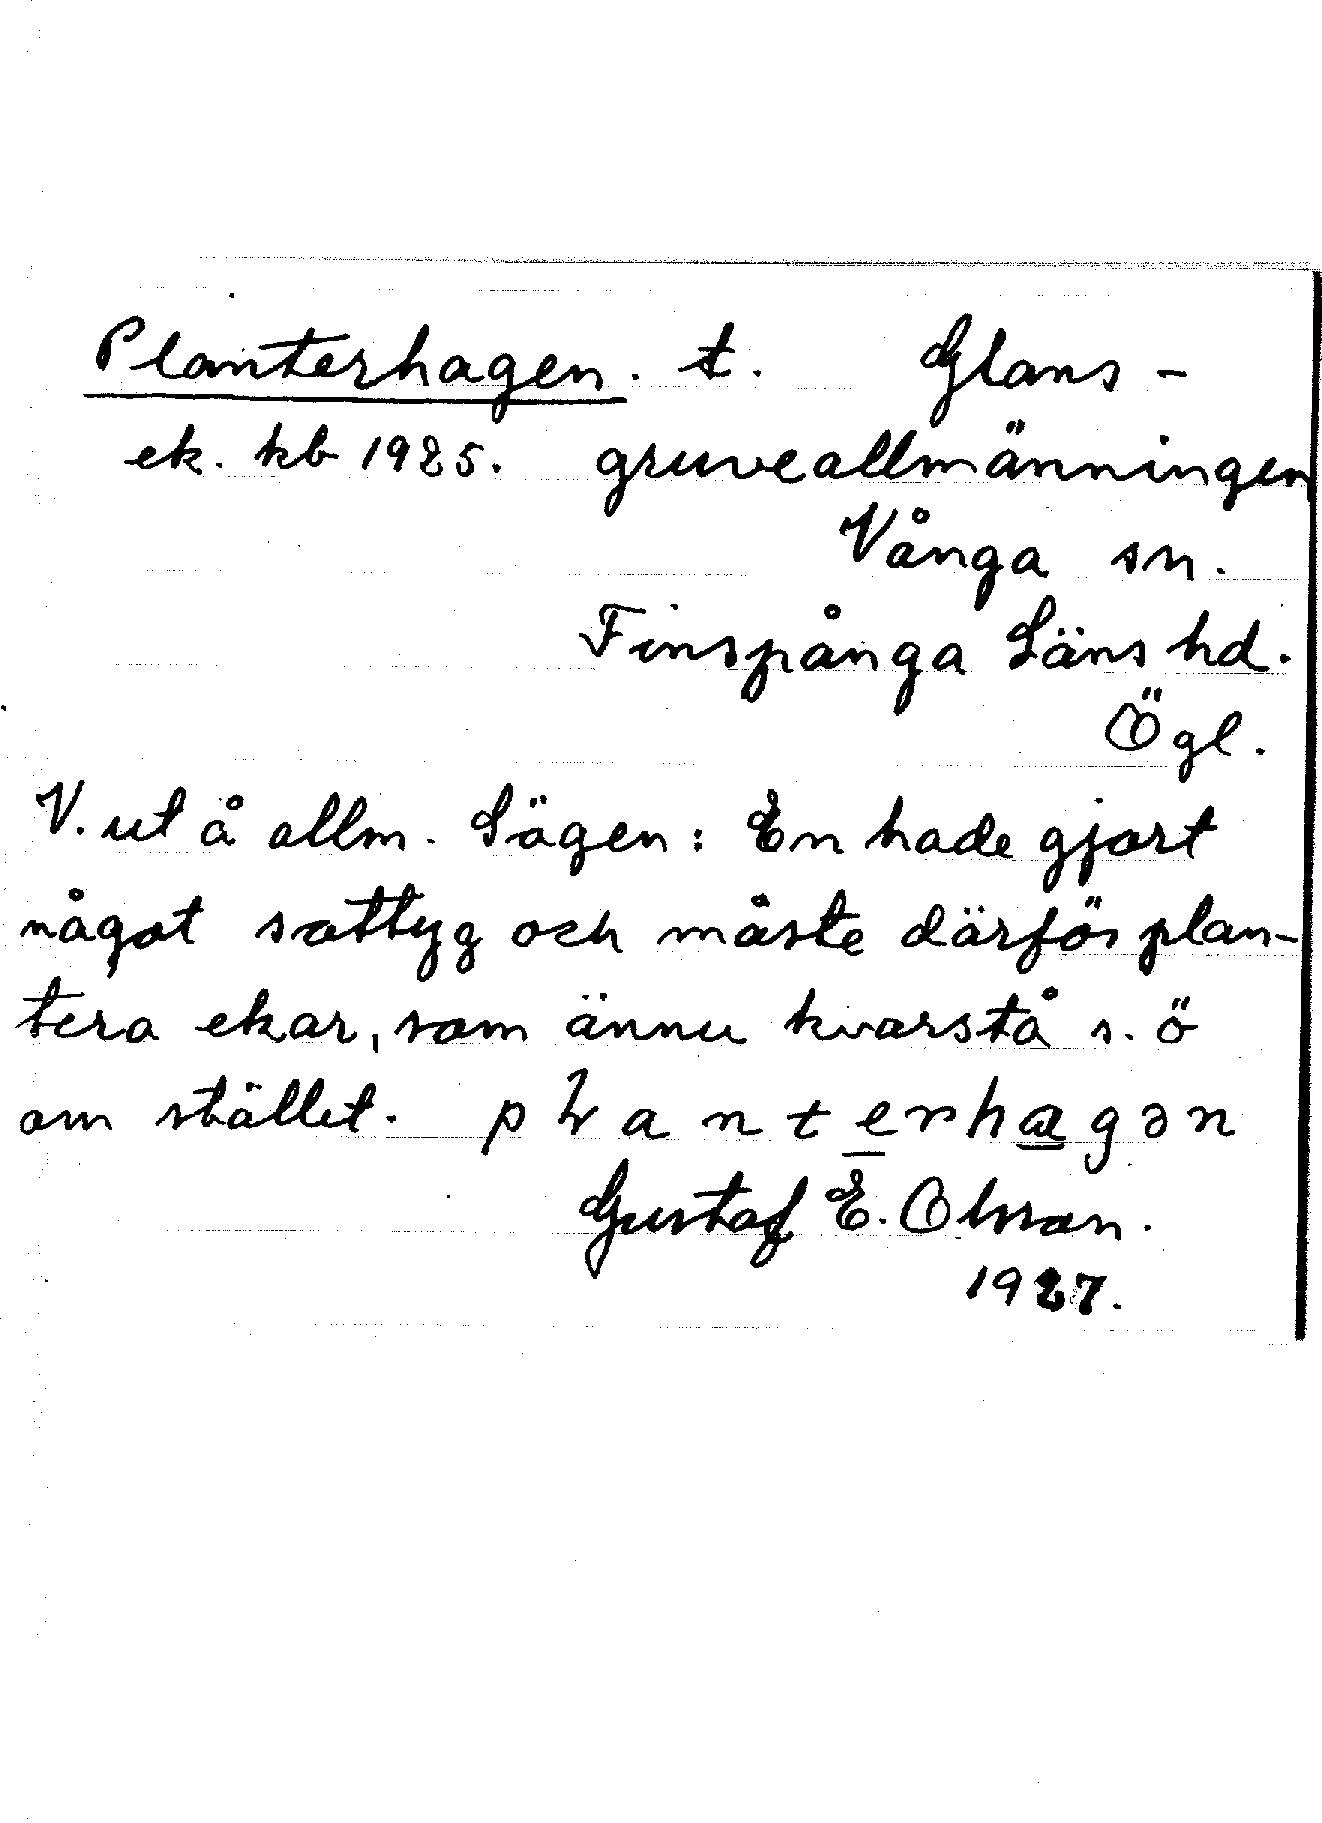 Planterhagen. t. Glans-
ek. kb 1925. gruveallmänningen
Vånga sn.
Finspånga Läns hd.
Ögl.
V. ut å allm. Sägen: En hade gjort
något sattyg och måste därför plan-
tera ekar, som ännu kvarstå s. ö
om stället. plantərhagən
Gustaf E. Olsson.
1927.